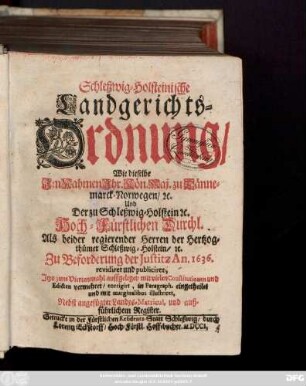 Schleßwig-Holsteinische
Landgerichts-
Ordnung/
Wie dieselbe
Im Nahmen Ihr. Kön. Maj. zu Dänne-
marck-Norwegen/ ꝛc.
Und
Der zu Schleßwig-Holstein ꝛc.
Hoch-Fürstlichen Durchl.
Als beider regierender Herren der Hertzog-
thümer Schleßwig-Holstein/ ꝛc.
Zu Beforderung der Justitz An. 1636.
revidiret und publiciret,
Jtzo zum Viertenmahl auffgeleget mit vielen Constitutionen und
Edicten vermehret/ corrigirt, in Paragraph. eingetheilet
und mit marginalibus illustriret,
Nebst angefügter Landes-Matricul, und auß-
führlichem Register.
Gedruckt in der Fürstlichen Residentz-Stadt Schleßwig/ durch
Hoch-Fürstl. Hoffbuchdr. MDCCI.